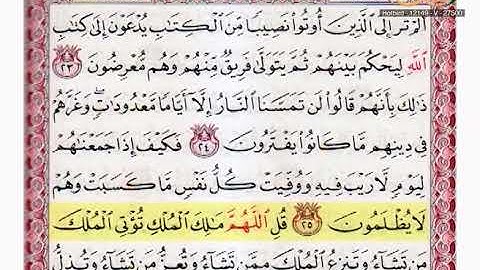 Hotbird - 12149 - V - 27500
أَلَمْ تَرَ إِلَى ٱلَّذِينَ أُوتُوا۟ نَصِيبًا مِّنَ ٱلْكِتَٰبِ يُدْعَوْنَ إِلَىٰ كِتَٰبِ
ٱللَّهِ لِيَحْكُمَ بَيْنَهُمْ ثُمَّ يَتَوَلَّىٰ فَرِيقٌ مِّنْهُمْ وَهُم مُّعْرِضُونَ ٢٣
ذَٰلِكَ بِأَنَّهُمْ قَالُوا۟ لَن تَمَسَّنَا ٱلنَّارُ إِلَّآ أَيَّامًا مَّعْدُودَٰتٍ وَغَرَّهُمْ
فِى دِينِهِم مَّا كَانُوا۟ يَفْتَرُونَ ٢٤ فَكَيْفَ إِذَا جَمَعْنَٰهُمْ
لِيَوْمٍ لَّا رَيْبَ فِيهِ وَوُفِّيَتْ كُلُّ نَفْسٍ مَّا كَسَبَتْ وَهُمْ
لَا يُظْلَمُونَ ٢٥ قُلِ ٱللَّهُمَّ مَٰلِكَ ٱلْمُلْكِ تُؤْتِى ٱلْمُلْكَ
مَن تَشَآءُ وَتَنزِعُ ٱلْمُلْكَ مِمَّن تَشَآءُ وَتُعِزُّ مَن تَشَآءُ وَتُذِلُّ